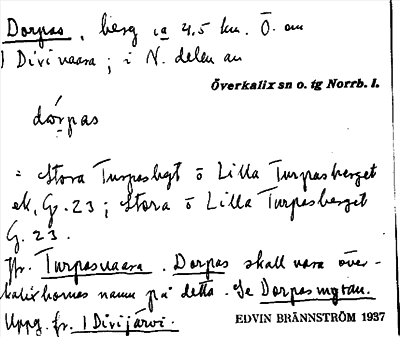 Dorpas, berg ca 4,5 km. Ö. om
| Divivaara; i N. delen av
Överkalix sn o. tg Norrb. l.
dórpas
= Stora Turpasbgt o Lilla Turpasberget
ek, G. 23; Stora o Lilla Turpasberget
G. 23.
Jfr. Turpasvaara. Dorpas skall vara över-
kalixbornas namn på detta. Se Dorpasmyran.
Uppg. fr. | Divijärvi.
EDVIN BRÄNNSTRÖM 1937